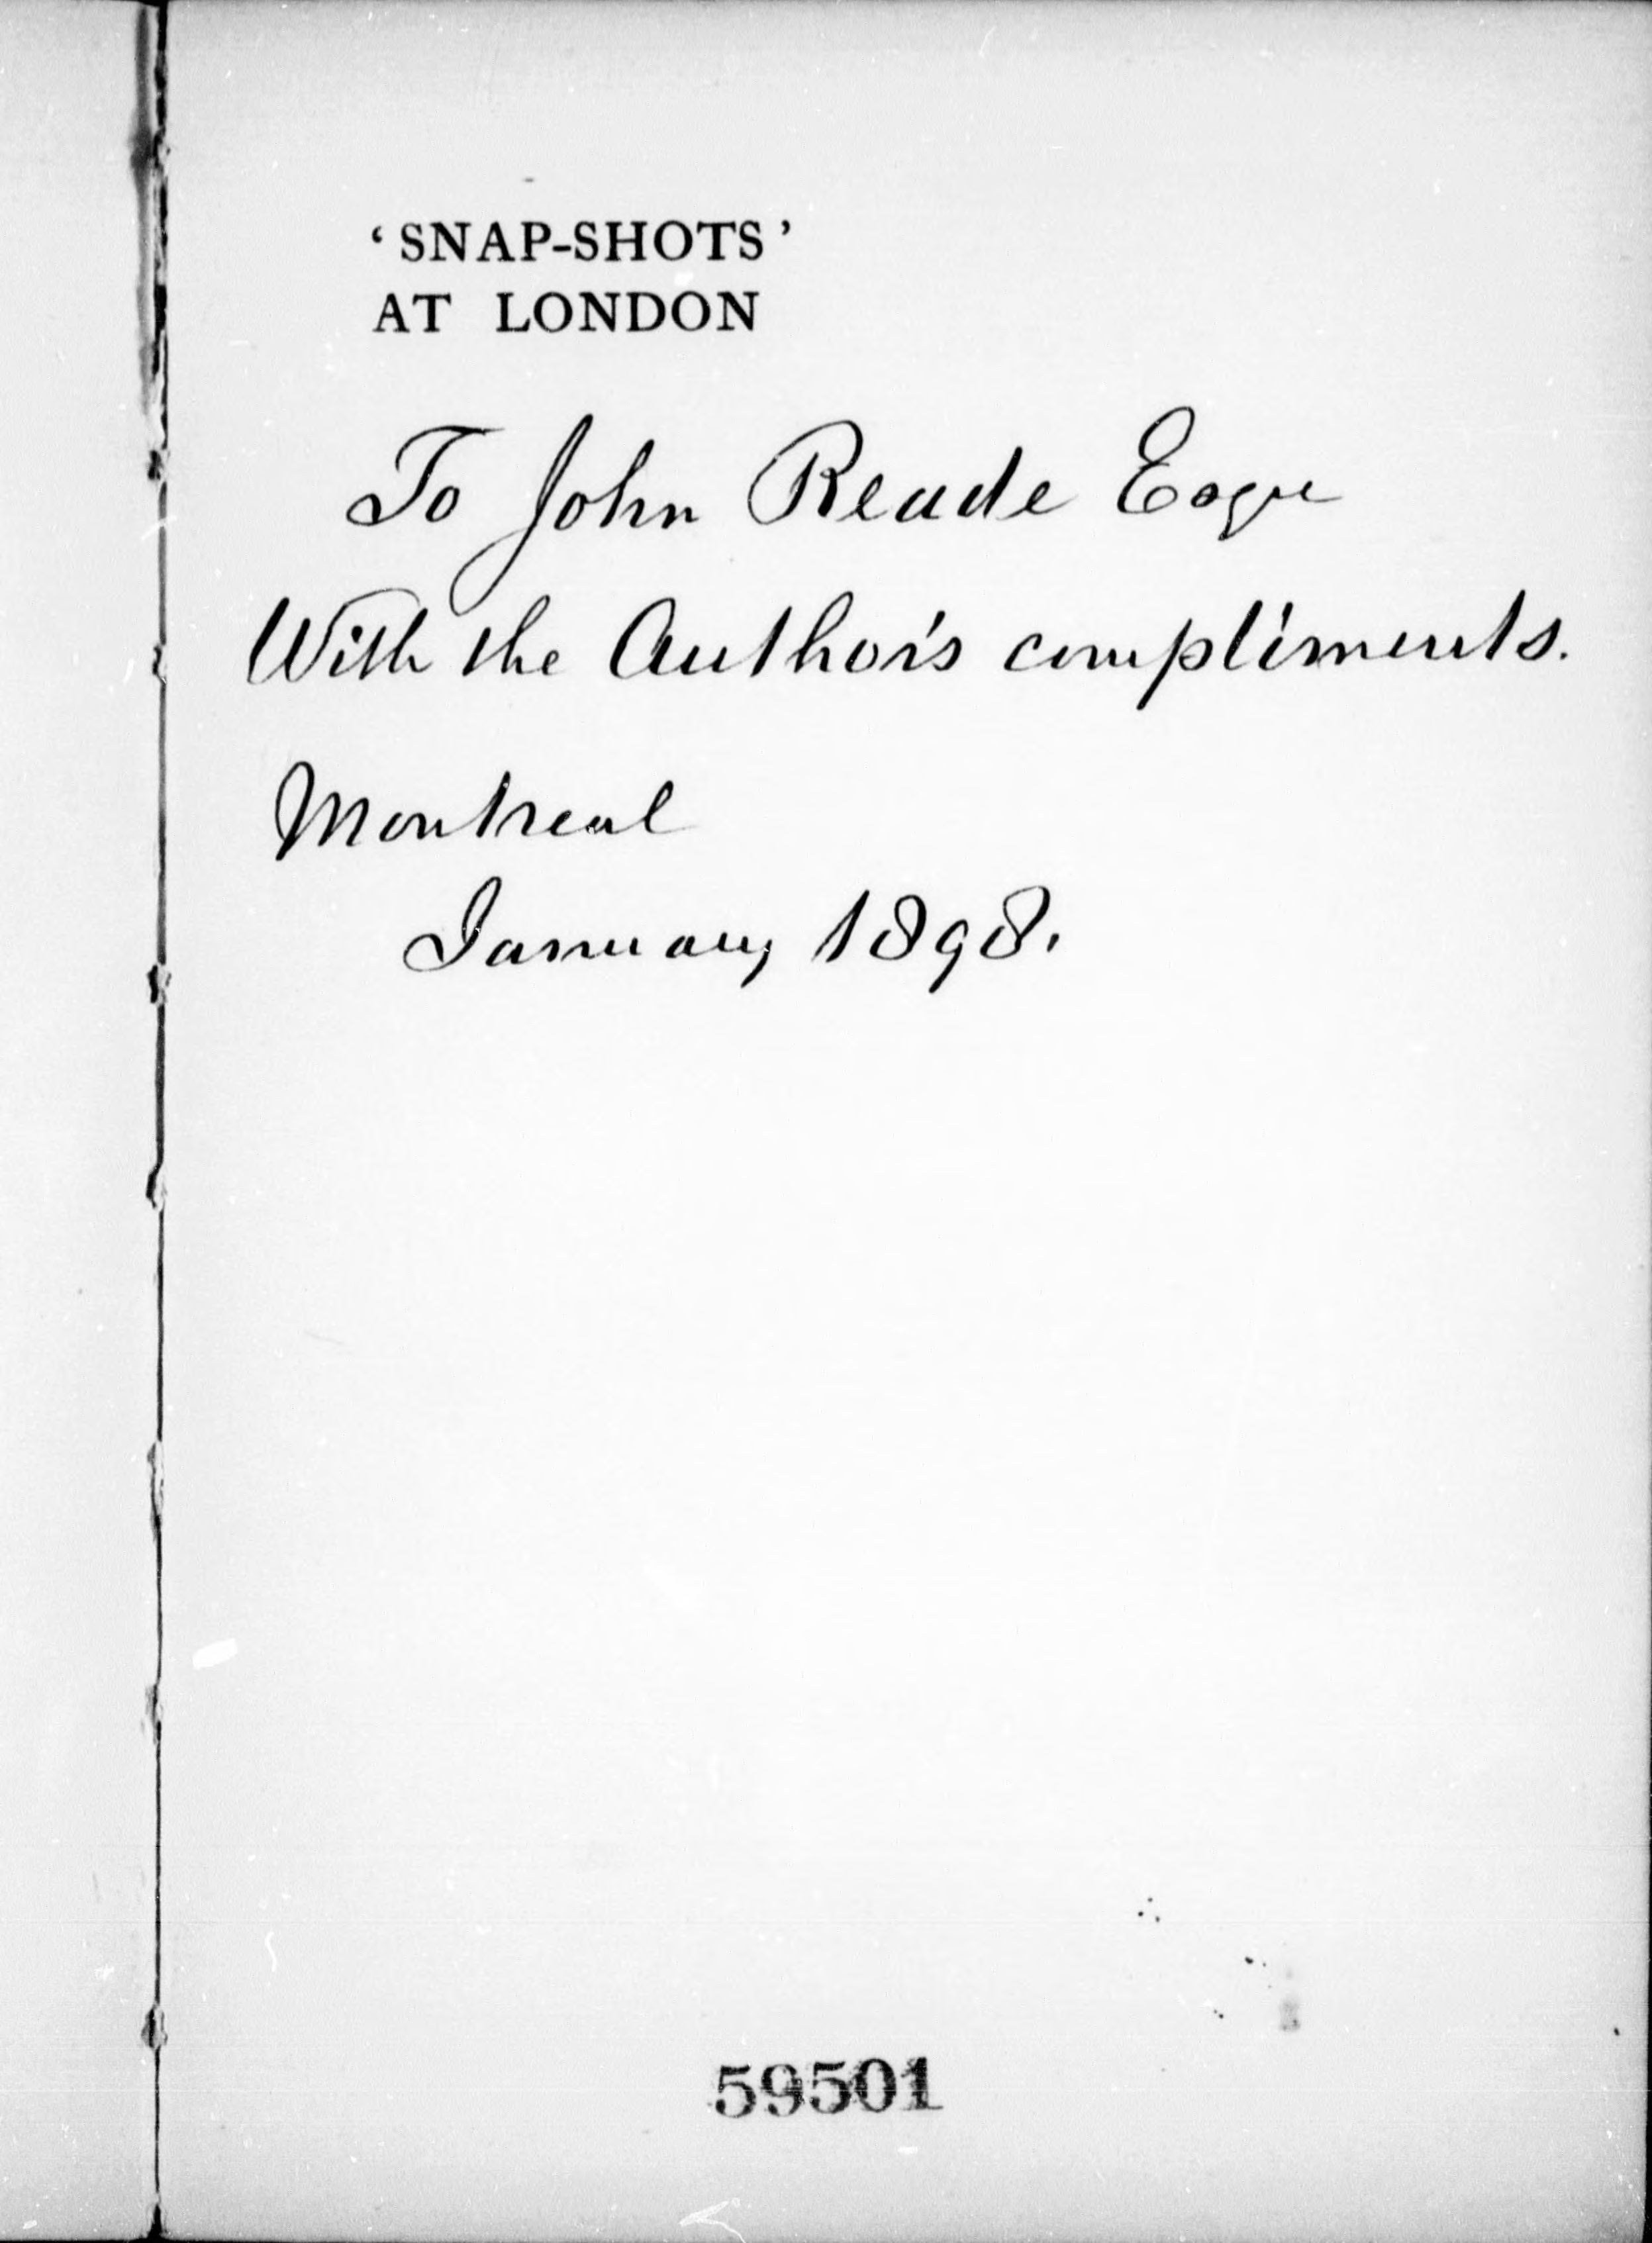 ‘SNAP-SHOTS’
AT LONDON
To John Reade Esqre
With the Author's compliments.
Montreal
January 1898.
59501